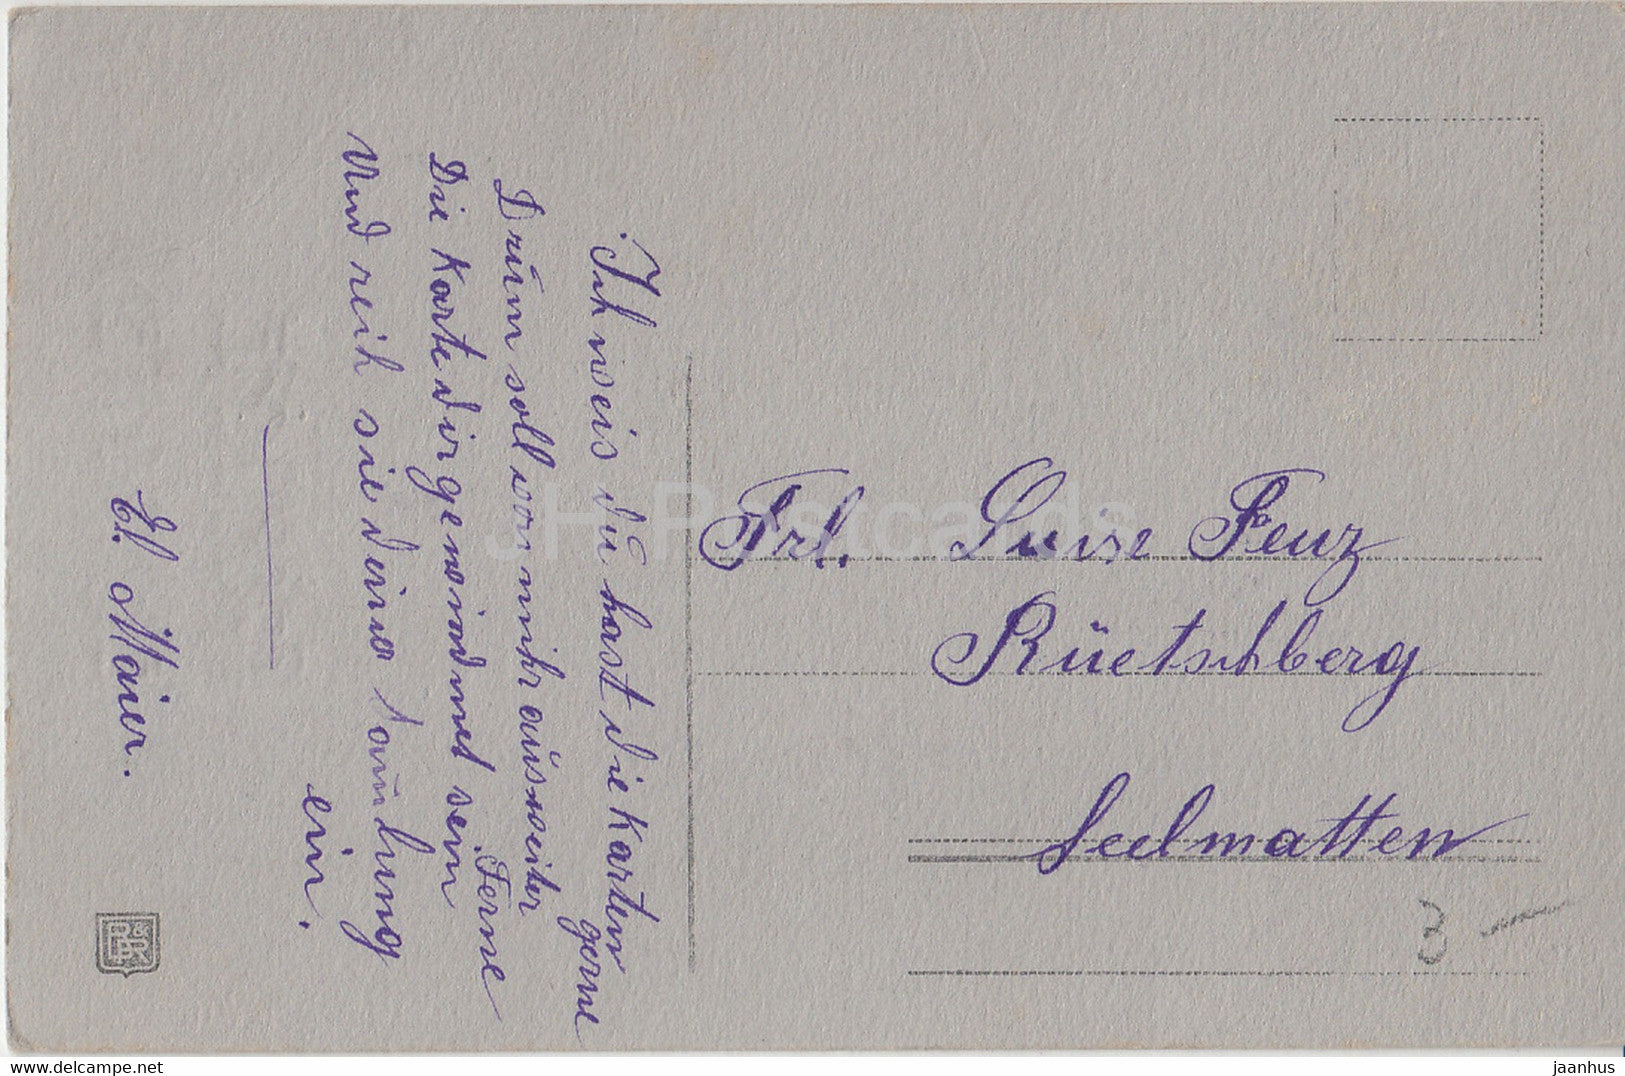 Ich weis dü hast die Karten
gerne
Drüm soll von mihr aüs weiter
Ferne
Die Karte dir gewindmet sein
Und reih sie deiner Samlung
ein.
El. Maier.
Frl. Luise Feuz
Rüetschberg
Seelmatten
3 —
JH Postcards
www.delcampe.net
jaanhus